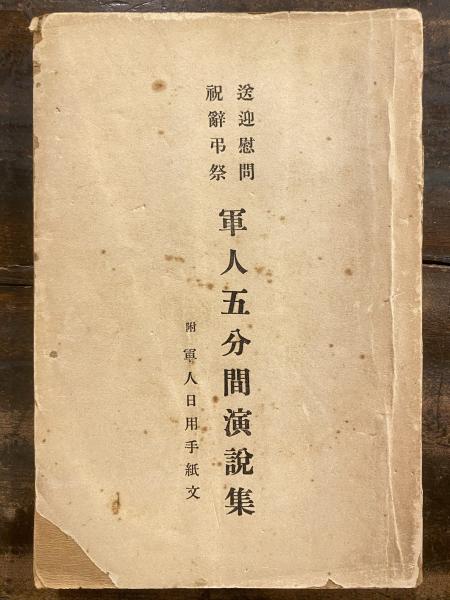 送迎慰問
祝辭弔祭
軍人五分間演說集
附 軍人日用手紙文